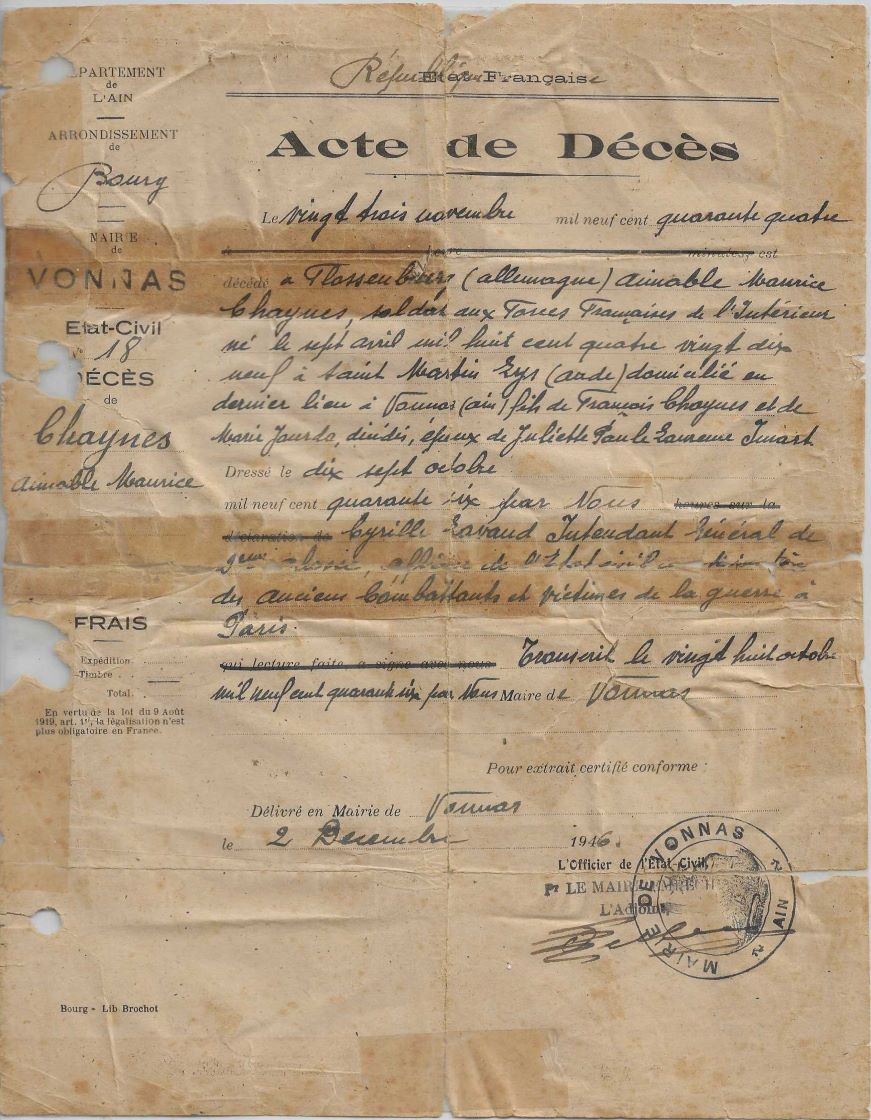 DÉPARTEMENT
de
L'AIN
ARRONDISSEMENT
de
Bourg
MAIRIE
de
VONNAS
Etat-Civil
N° 18
DÉCÈS
de
Chaynes
Aimable Maurice
FRAIS
Expédition
Timbre
Total
En vertu de la loi du 9 Août
1919, art. 1er, la légalisation n'est
plus obligatoire en France.
République Etat Française
Acte de Décès
Le vingt trois novembre mil neuf cent quarante quatre
à heure minutes, est
décédé à Flossenburg (allemagne) Aimable Maurice
Chaynes, soldat aux Forces Françaises de l'Intérieur
né le sept avril mil huit cent quatre vingt dix
neuf à Saint Martin Lys (aude) domicilié en
dernier lieu à Vonnas (ain) fils de François Chaynes et de
Marie Jourda, décédés, époux de Juliette Paule Laurence Imart
Dressé le dix sept octobre
mil neuf cent quarante six par Nous heures sur la
déclaration de Cyrille Lavaud Intendant Général de
2eme classe, officier de l'Etat civil
des anciens Combattants et victimes de la guerre à
Paris.
qui lecture faite a signé avec nous Transcrit le vingt huit octobre
mil neuf cent quarante six par Nous Maire de Vonnas
Pour extrait certifié conforme :
Délivré en Mairie de Vonnas
le 2 Decembre 1946.
L'Officier de l'Etat-Civil,
Pr LE MAIRE
L'Adjoint,
MAIRIE DE VONNAS
AIN
Bourg - Lib Brochot